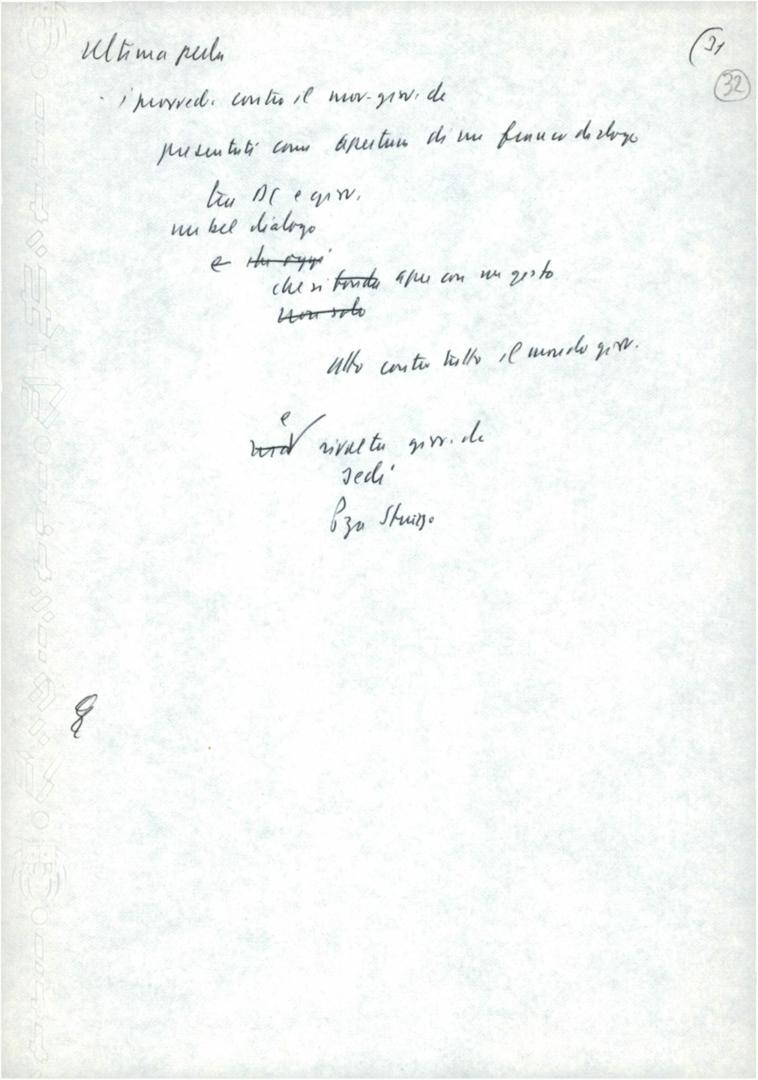 (31
32
Ultima perla
- i provved. contro il mov. giov. dc
presentati come apertura di un franco dialogo
tra DC e giov.
un bel dialogo
e che oggi
che si fonda apre con un gesto
non solo
atto contro tutto il mondo giov.
e
ma rivolta giov. dc
sedi
Pza Sturzo